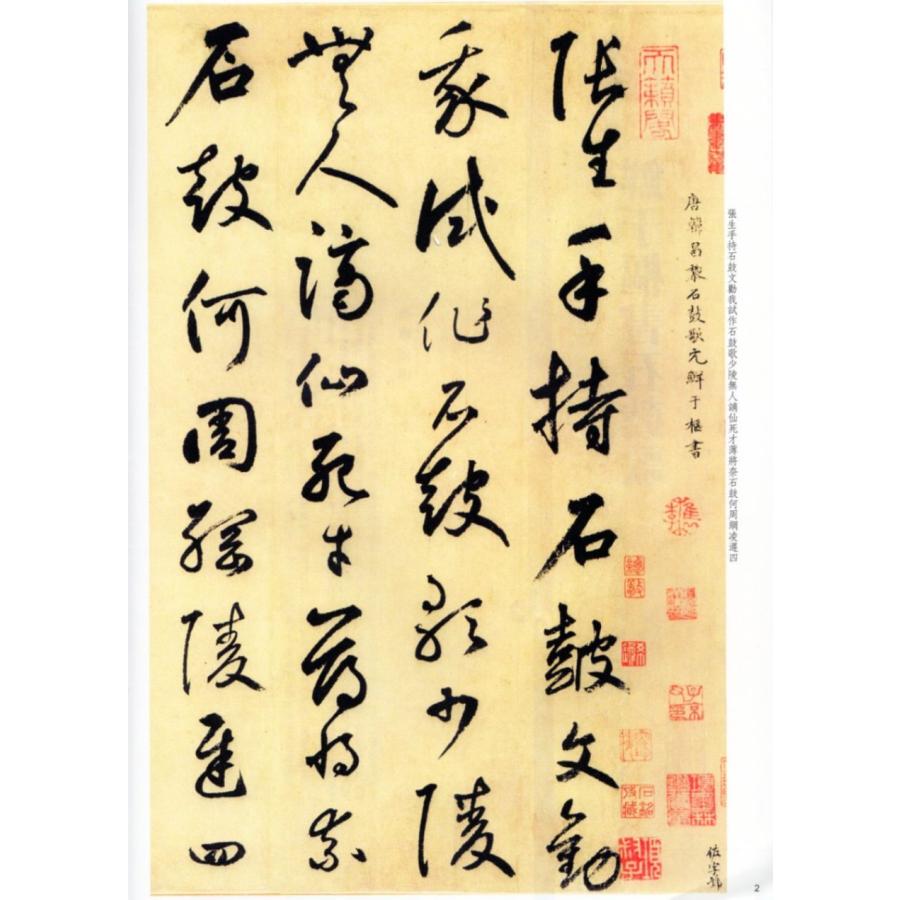 張生手持石鼓文勸我試作石鼓歌少陵無人謫仙死才薄將奈石鼓何周綱凌遲四
唐韓昌黎石鼓歌元鮮于樞書
天籟閣
張生手持石鼓文勸
我試作石鼓歌少陵
無人謫仙死才薄將奈
石鼓何周綱陵遲四
2